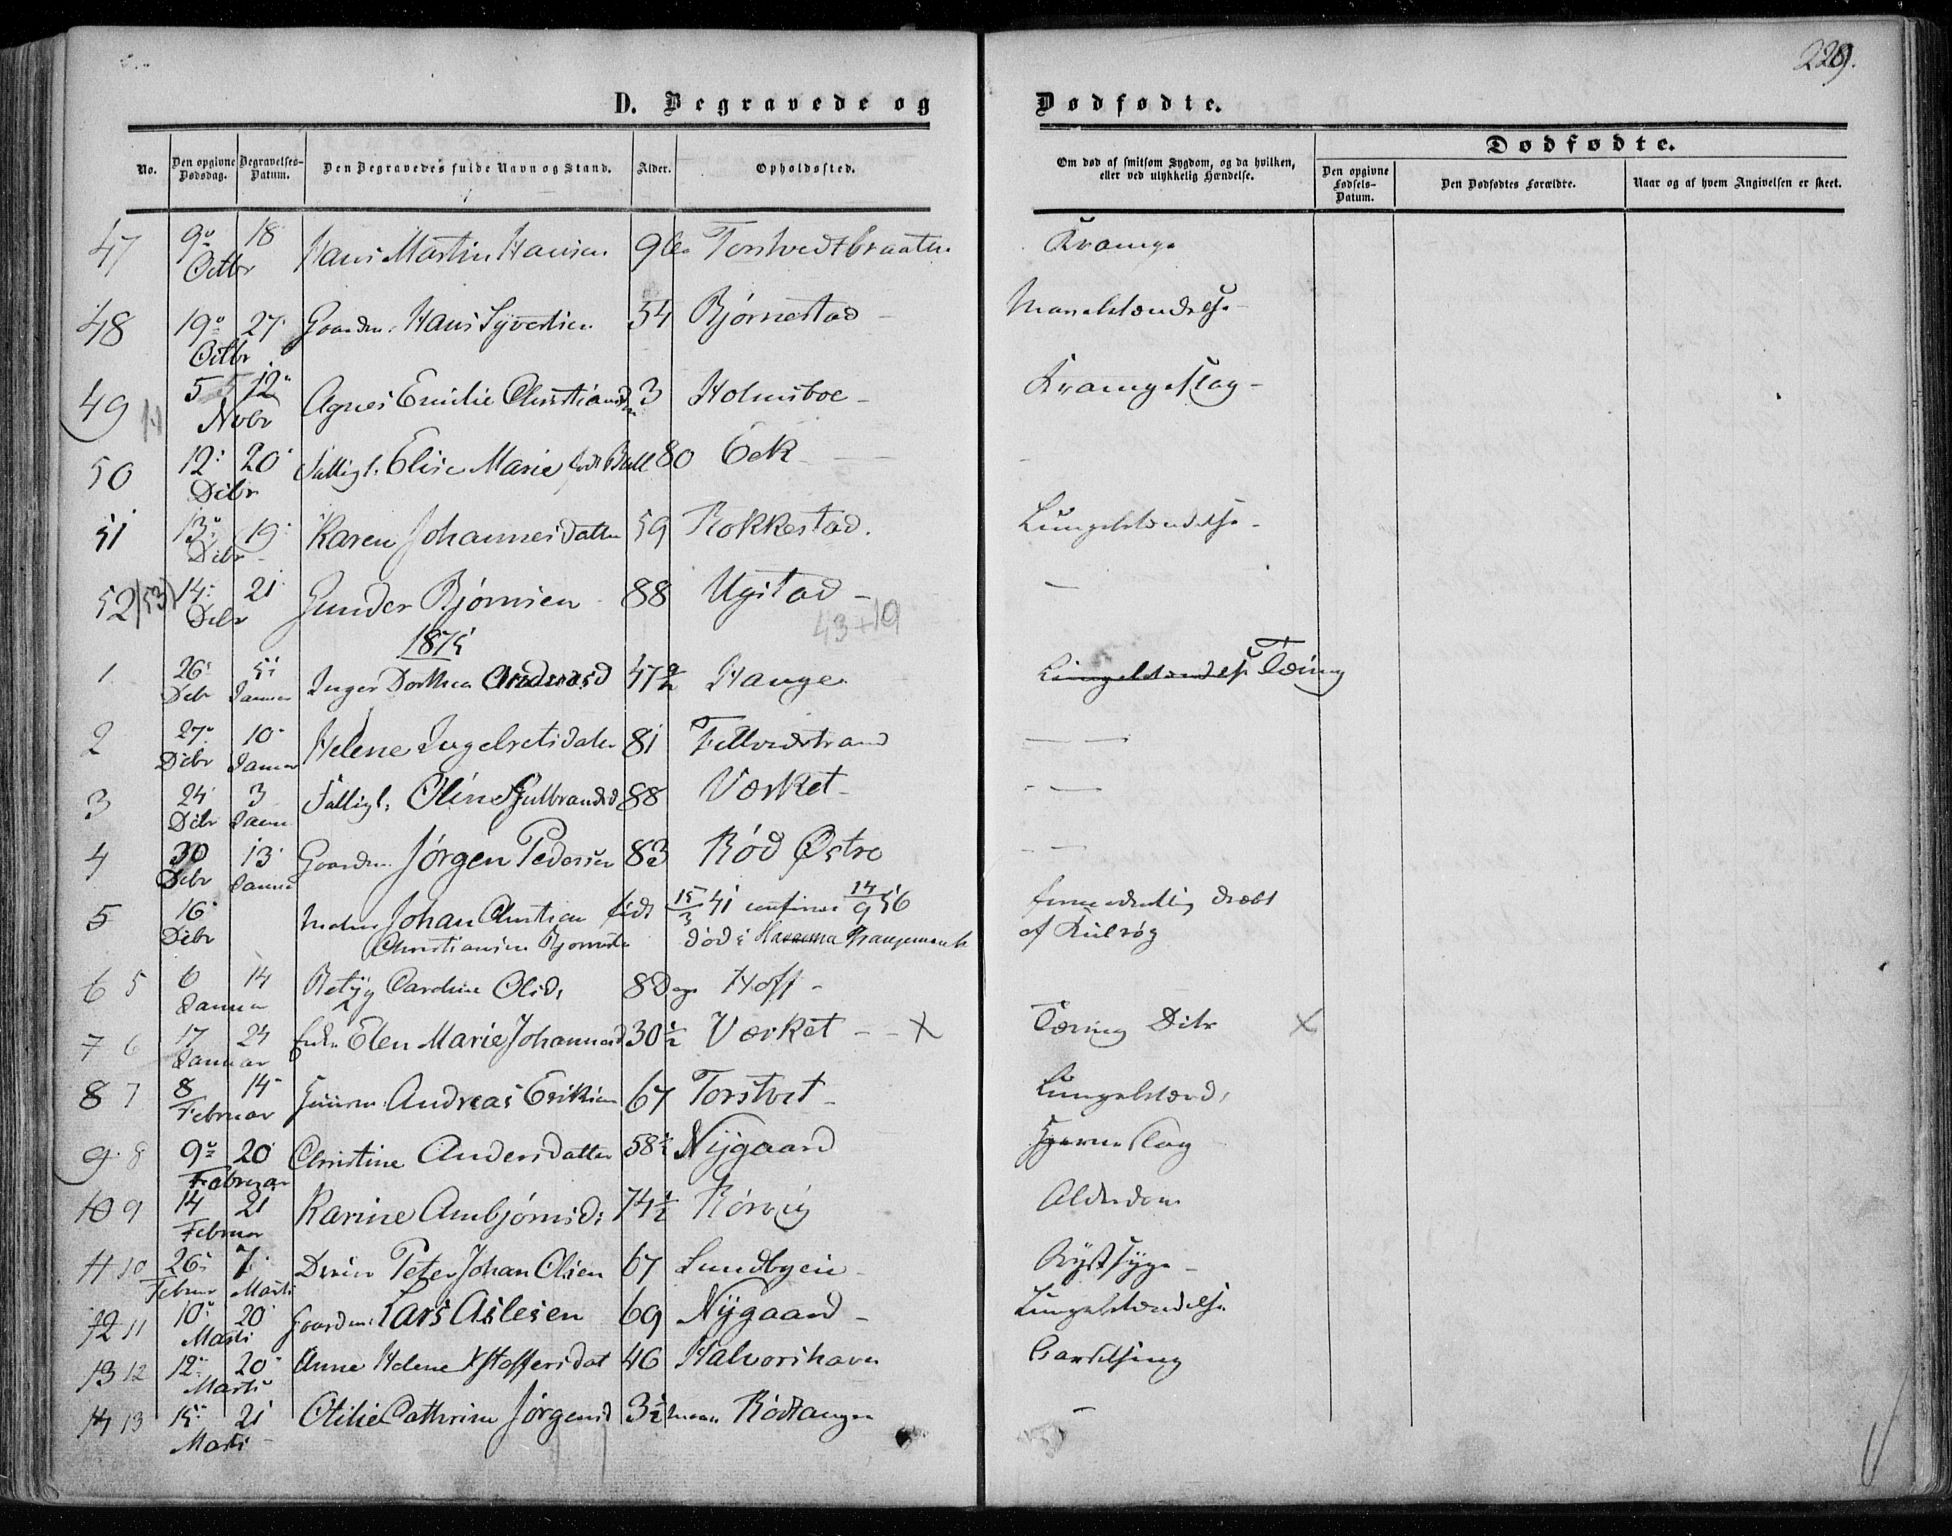 229.
D. Begravede og Dødfødte.
Dødfødte.
No. Den opgivne Dødsdag. Begravelses-Datum. Den Begravedes fulde Navn og Stand. Alder. Opholdssted. Om død af smitsom Sygdom, og da hvilken, eller ved ulykkelig Hændelse. Den opgivne Fødsels-Datum. Den Dødfødtes Forældre. Naar og af hvem Angivelsen er skeet.
47 9 18 Octbr Hans Martin Hansen 9 Torstvedtbraaten Krampe
48 19 27 Octbr Gaardm. Hans Syvertsen 54 Bjørnestad
49 5 12 Novbr Agnes Emilie Christians 3 Holmsboe Krampeslag
50 12 20 Debr Fattigl. Elise Marie født Bull 80 Eek
51 13 19 Debr Karen Johannesdatter 59 Rokkestad. Lungebetændelse
52 (53) 14 21 Debr Gunder Bjørnsen 88 Ugstad
43+19
1875
1 26 Debr 5 Januar Inger Dorthea Andreasd 47 1/2 Hauge Lungebetændelse Tæring
2 27 Debr 10 Januar Helene Ingebretsdater 81 Fellvedstrand
3 24 Debr 3 Janu Fattigl. Oline Gulbrandsd 88 Værket
4 30 Debr 13 Janua Gaardm. Jørgen Pedersen 83 Rød Østre
5 16 Debr Johan Christian født 15/3 41 confirm 14/9 56 dræbt
Christiansen død i af Kulrøg
6 5 6 14 Januar Caroline Olsd. 8 Dage Hoff
7 6 17 24 Januar Elen Marie Johannesd 30 1/2 Værket X Tæring Debr X
8 7 8 14 Februar Andreas Eriksen 67 Torstvet Lungebetænd.
9 8 9 20 Februar Christine Andersdatter 58 1/2 Nygaard Hjerneslag
10 9 14 21 Februar Karine Ambjørnsd. 74 1/2 Rørvig Alderdom
11 10 26 Februar 7 Marts Peter Johan Olsen 67 Sundbyen Brystsyge
12 11 10 20 Marts Gaardm. Lars Aslesen 69 Nygaard Lungebetændelse
13 12 12 20 Marts Anne Helene Xstoffersdat 46 Halvorshavn Barselseng
14 13 15 21 Marts Otilie Cathrine Jørgensd 3 1/2 Rødtangen